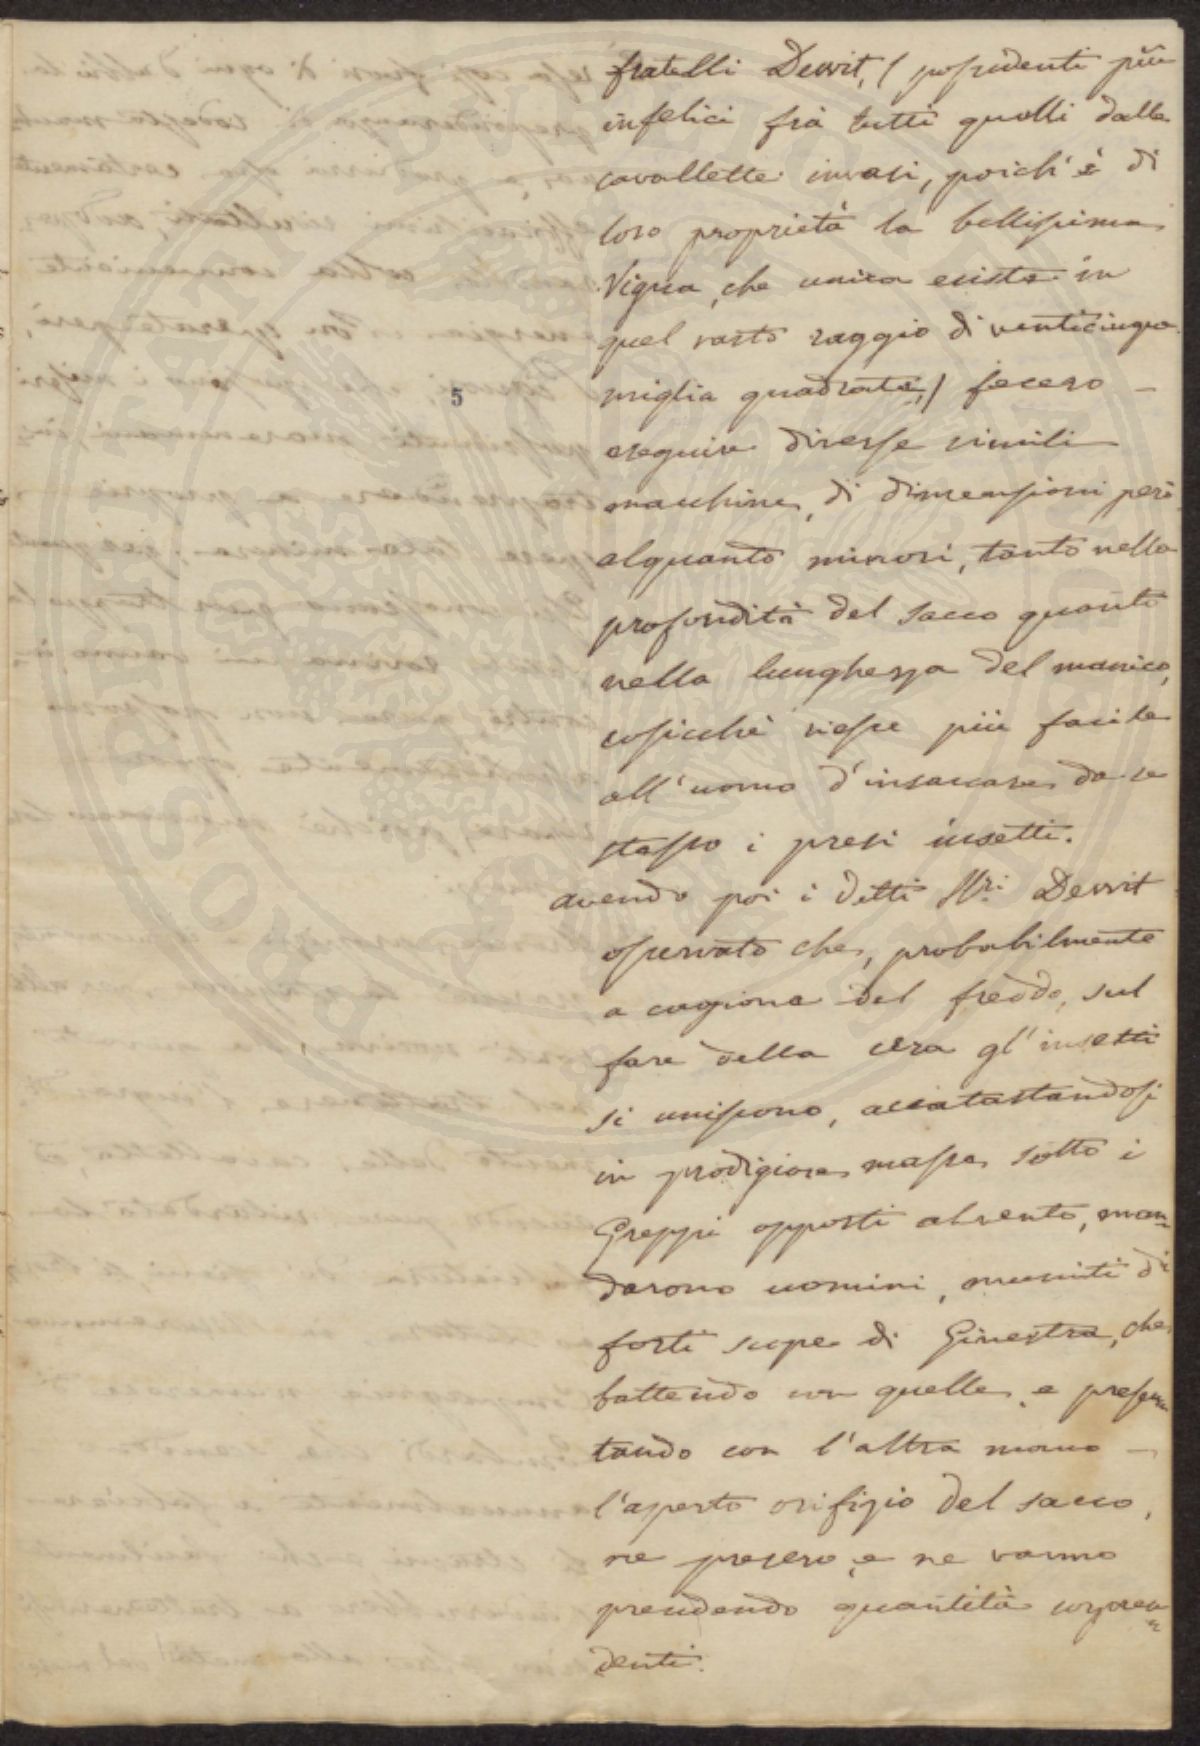 fratelli Dewit, (possidenti più
infelici frà tutti quelli dalle
cavallette invasi, poich'è di
loro proprietà la bellissima
Vigna, che unica esiste in
quel vasto raggio di venticinque
miglia quadrate,) fecero —
eseguire diverse simili
macchine, di dimensioni però
alquanto minori, tanto nella
profondità del sacco quanto
nella lunghezza del manico,
cosicchè riesce più facile
all'uomo d'insaccare da se
stesso i presi insetti.
avendo poi i detti Sig.ri Dewit
osservato che, probabilmente
a cagione del freddo, sul
fare della sera gl'insetti
si uniscono, accatastandosi
in prodigiose masse sotto i
Greppi opposti al vento, man=
darono uomini, muniti di
forti scope di Ginestra, che
battendo con quelle, e presen
tando con l'altra mano —
l'aperto orifizio del sacco,
ne presero, e ne vanno
prendendo quantità sorpren=
denti.
5